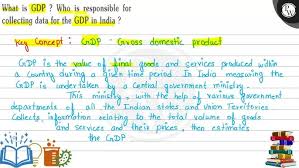 What is GDP ? Who is responsible for
collecting data for the GDP in India ?
Key Concept : GDP - Gross domestic product
GDP is the value of final goods and services produced within
a country during a given time period. In India measuring the
GDP is undertaken by a Central government ministry.
This ministry, with the help of various government
departments of all the Indian states and Union Territories
Collects information relating to the total volume of goods
and services and their prices, then estimates
the GDP